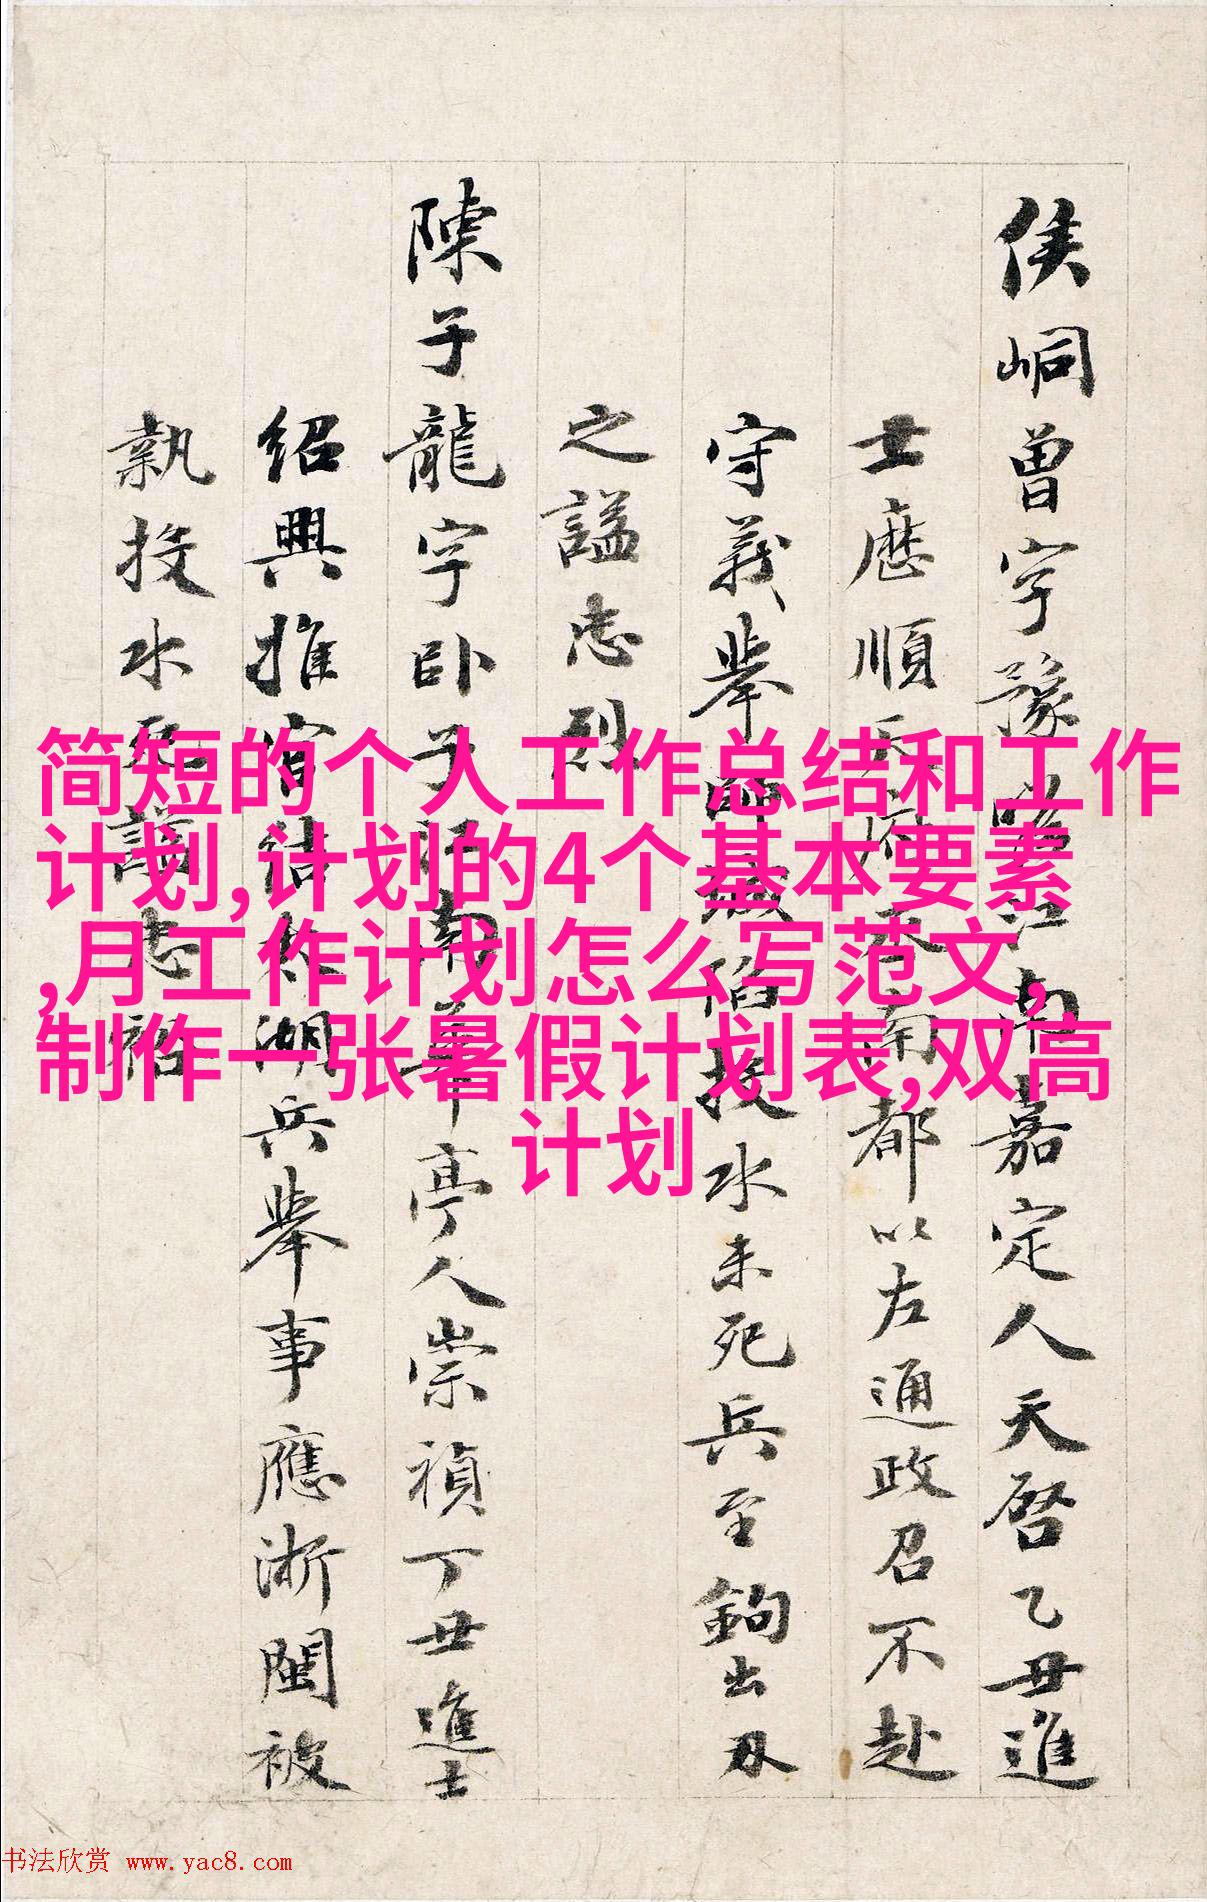 侯峒曾字豫瞻江南嘉定人天啓乙丑進
士歷順天府丞南都以左通政召不赴
守義舉師城陷投水未死兵至鉤出刃
之謚忠烈
陳子龍字卧子江南華亭人崇禎丁丑進士
紹興推官結太湖兵舉事應浙閩被
執投水死謚忠裕
简短的个人工作总结和工作
计划,计划的4个基本要素
,月工作计划怎么写范文,
制作一张暑假计划表,双高
计划
书法欣赏 www.yac8.com